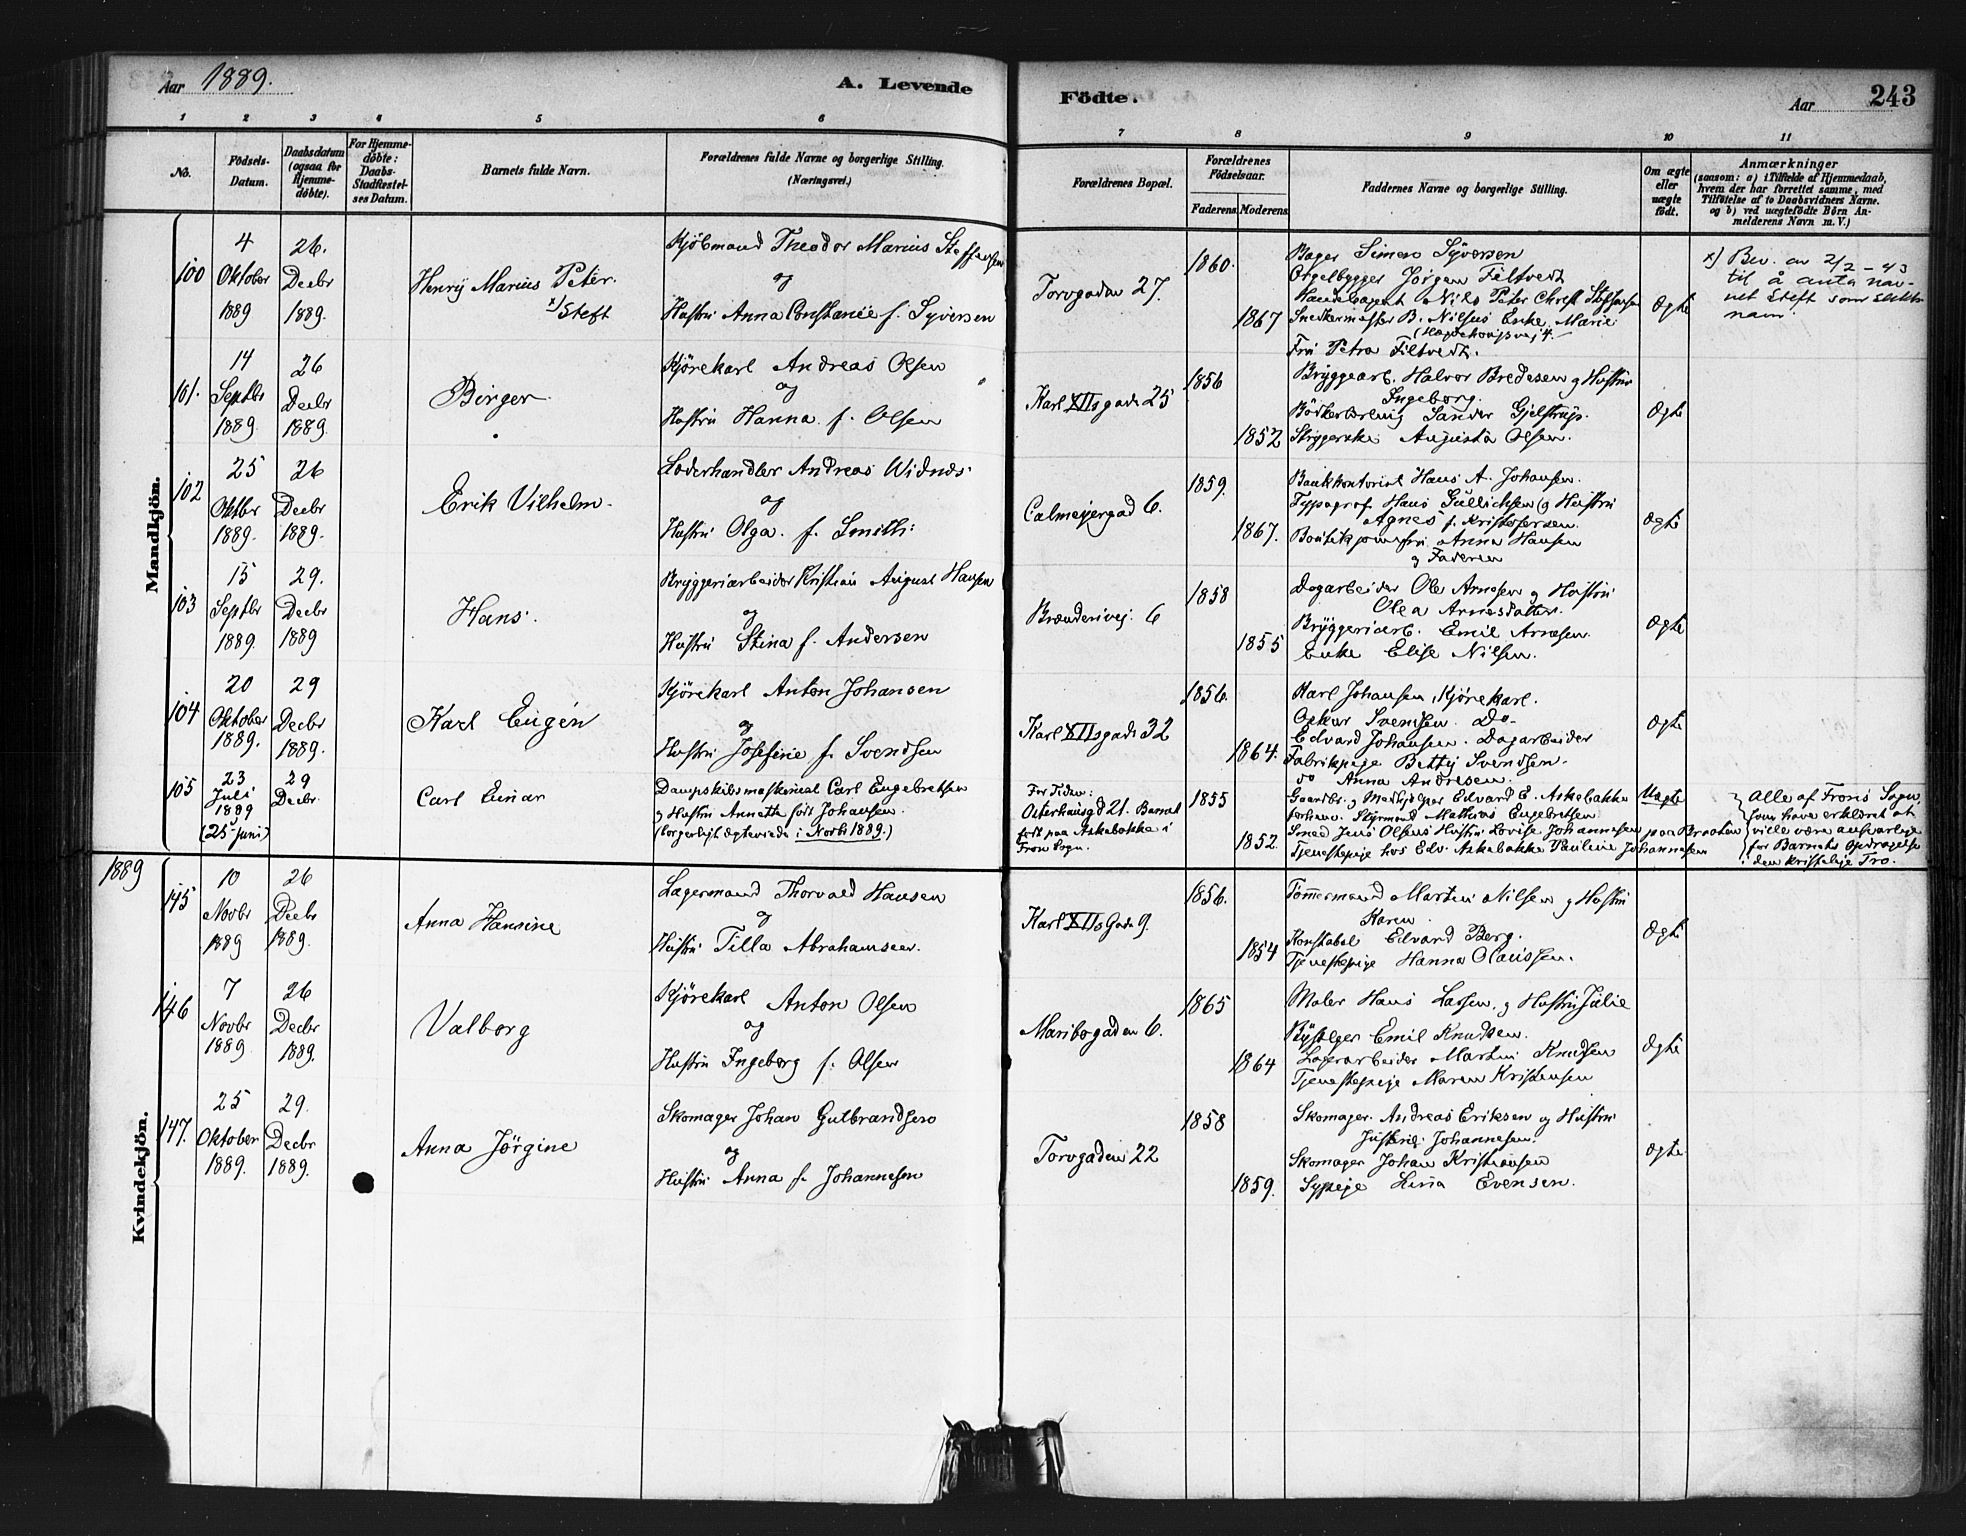 Aar 1889.
A. Levende
Födte.
Aar
243
1 2 3 4 5 6 7 8 9 10 11
No.
Födsels-
Datum.
Daabsdatum
(ogsaa for
Hjemme-
döbte).
For Hjemme-
döbte:
Daabs-
Stadfæstel-
ses Datum.
Barnets fulde Navn.
Forældrenes fulde Navne og borgerlige Stilling.
(Næringsvei.)
Forældrenes Bopæl.
Forældrenes
Födselsaar.
Faderens. Moderens.
Faddernes Navne og borgerlige Stilling.
Om ægte
eller
uægte
födt.
Anmærkninger
(saasom: a) i Tilfælde af Hjemmedaab,
hvem der har forrettet samme, med
Tilföielse af to Daabsvidners Navne.
og b) ved uægtefödte Börn An-
melderens Navn m. V.)
Mandkjön.
100
4
Oktober
1889
26.
Decbr
1889.
Henrÿ Marius Peter.
x) Steft
Kjöbmand Theodor Marius Steffensen
og
Hustru Anna Constance f. Syversen
Torvgaden 27.
1860.
1867
Bager Simen Syversen
Orgelbygger Jörgen Filtvedt
Handelsagent Nils Peter Christ. Steffensen
Snedkermester B. Nilsens Enke Marie
Fru Petra Filtvedt.
Ægte
x) Bev. av 2/2-43
til å anta nav-
net Steft som slekts-
navn.
101.
14
Septbr
1889
26
Decbr
1889.
Birger
Kjörekarl Andreas Olsen
og
Hustru Hanna f. Olsen
Karl XIIs gade 25
1856
1852
Bryggearb. Halvor Bredesen og Hustru
Ingeborg.
Sander Gjelstrup.
Strygerske Augusta Olsen.
Ægte
102
25
Oktbr
1889.
26
Decbr
1889.
Erik Vilhelm.
Læderhandler Andreas Widnes
og
Hustru Olga f. Smith
Calmeyergad 6.
1859.
1867.
Bankkontorist Hans A. Johansen.
Typograf Hans Gullichsen og Hustru
Agnes f. Kristofersen.
Butikjomfru Anna Hansen
og Faderen
Ægte
103
15
Septbr
1889.
29.
Decbr
1889
Hans.
Bryggeriarbeider Kristian August Hansen
og
Hustru Stina f. Andersen
Brænderivej 6
1858
1855
Dagarbeider Ole Arnesen og Hustru
Olea Arnesdatter.
Bryggeriarb. Emil Arnesen.
Enke Elise Nilsen.
Ægte
104
20
Oktober
1889.
29
Decbr
1889.
Karl Eugén
Kjörekarl Anton Johansen
og
Hustru Josefine f. Svendsen
Karl XIIs gade 32
1856.
1864.
Karl Johansen, Kjörekarl.
Oskar Svendsen. Do-
Edvard Johansen. Dagarbeider
Fabrikpige Betty Svendsen.
do Anna Andresen.
Ægte
105
23
Juli
1889
(25 juni)
29
Decbr.
Carl Einar
Dampskibsmaskinist Carl Engebretsen
og Hustru Annette född Johansen.
(borgerligt ægteviede i Novbr 1889.)
For Tiden:
Osterhausgd 21. Barnet
födt paa Askebakke i
Fron Sogn.
1855
1852.
Gaardbr. og Medhjelper Edvard E. Askebakke
forhenv. Styrmand Mathias Engebretsen
Smed Jens Olsens Hustru Lovise Johannesen paa Braaten
Tjenestepige hos Edv. Askebakke Pauline Johannesen
Uægte
Alle af Frons Sogn,
som have erklæret at
ville være ansvarlige
for Barnets Opdragelse
i den kristelige Tro.
1889
Kvindekjön.
145
10
Novbr
1889
26
Decbr
1889.
Anna Hansine
Lagermand Thorvald Hansen
og
Hustru Tilla Abrahamsen.
Karl XIIs Gade 9.
1856.
1854
Tömmermand Martin Nilsen og Hustru
Karen.
Konstabel Edvard Berg.
Tjenestepige Hanna Olaussen.
Ægte
146
7
Novbr
1889
26
Decbr
1889.
Valborg
Kjörekarl Anton Olsen
og
Hustru Ingeborg f. Olsen
Maribogaden 6.
1865
1864
Maler Hans Larsen og Hustru Julie
Emil Knudsen.
Lagerarbeider Martin Knudsen
Tjenestepige Maren Kristensen
Ægte
147.
25
Oktober
1889.
29.
Decbr
1889.
Anna Jörgine
Skomager Johan Gulbrandsen
og
Hustru Anna f. Johannesen
Torvgaden 22
1858
1859.
Skomager Andreas Eriksen og Hustru
Johannesen.
Skomager Johan Kristiansen
Sypige Lina Evensen.
Ægte